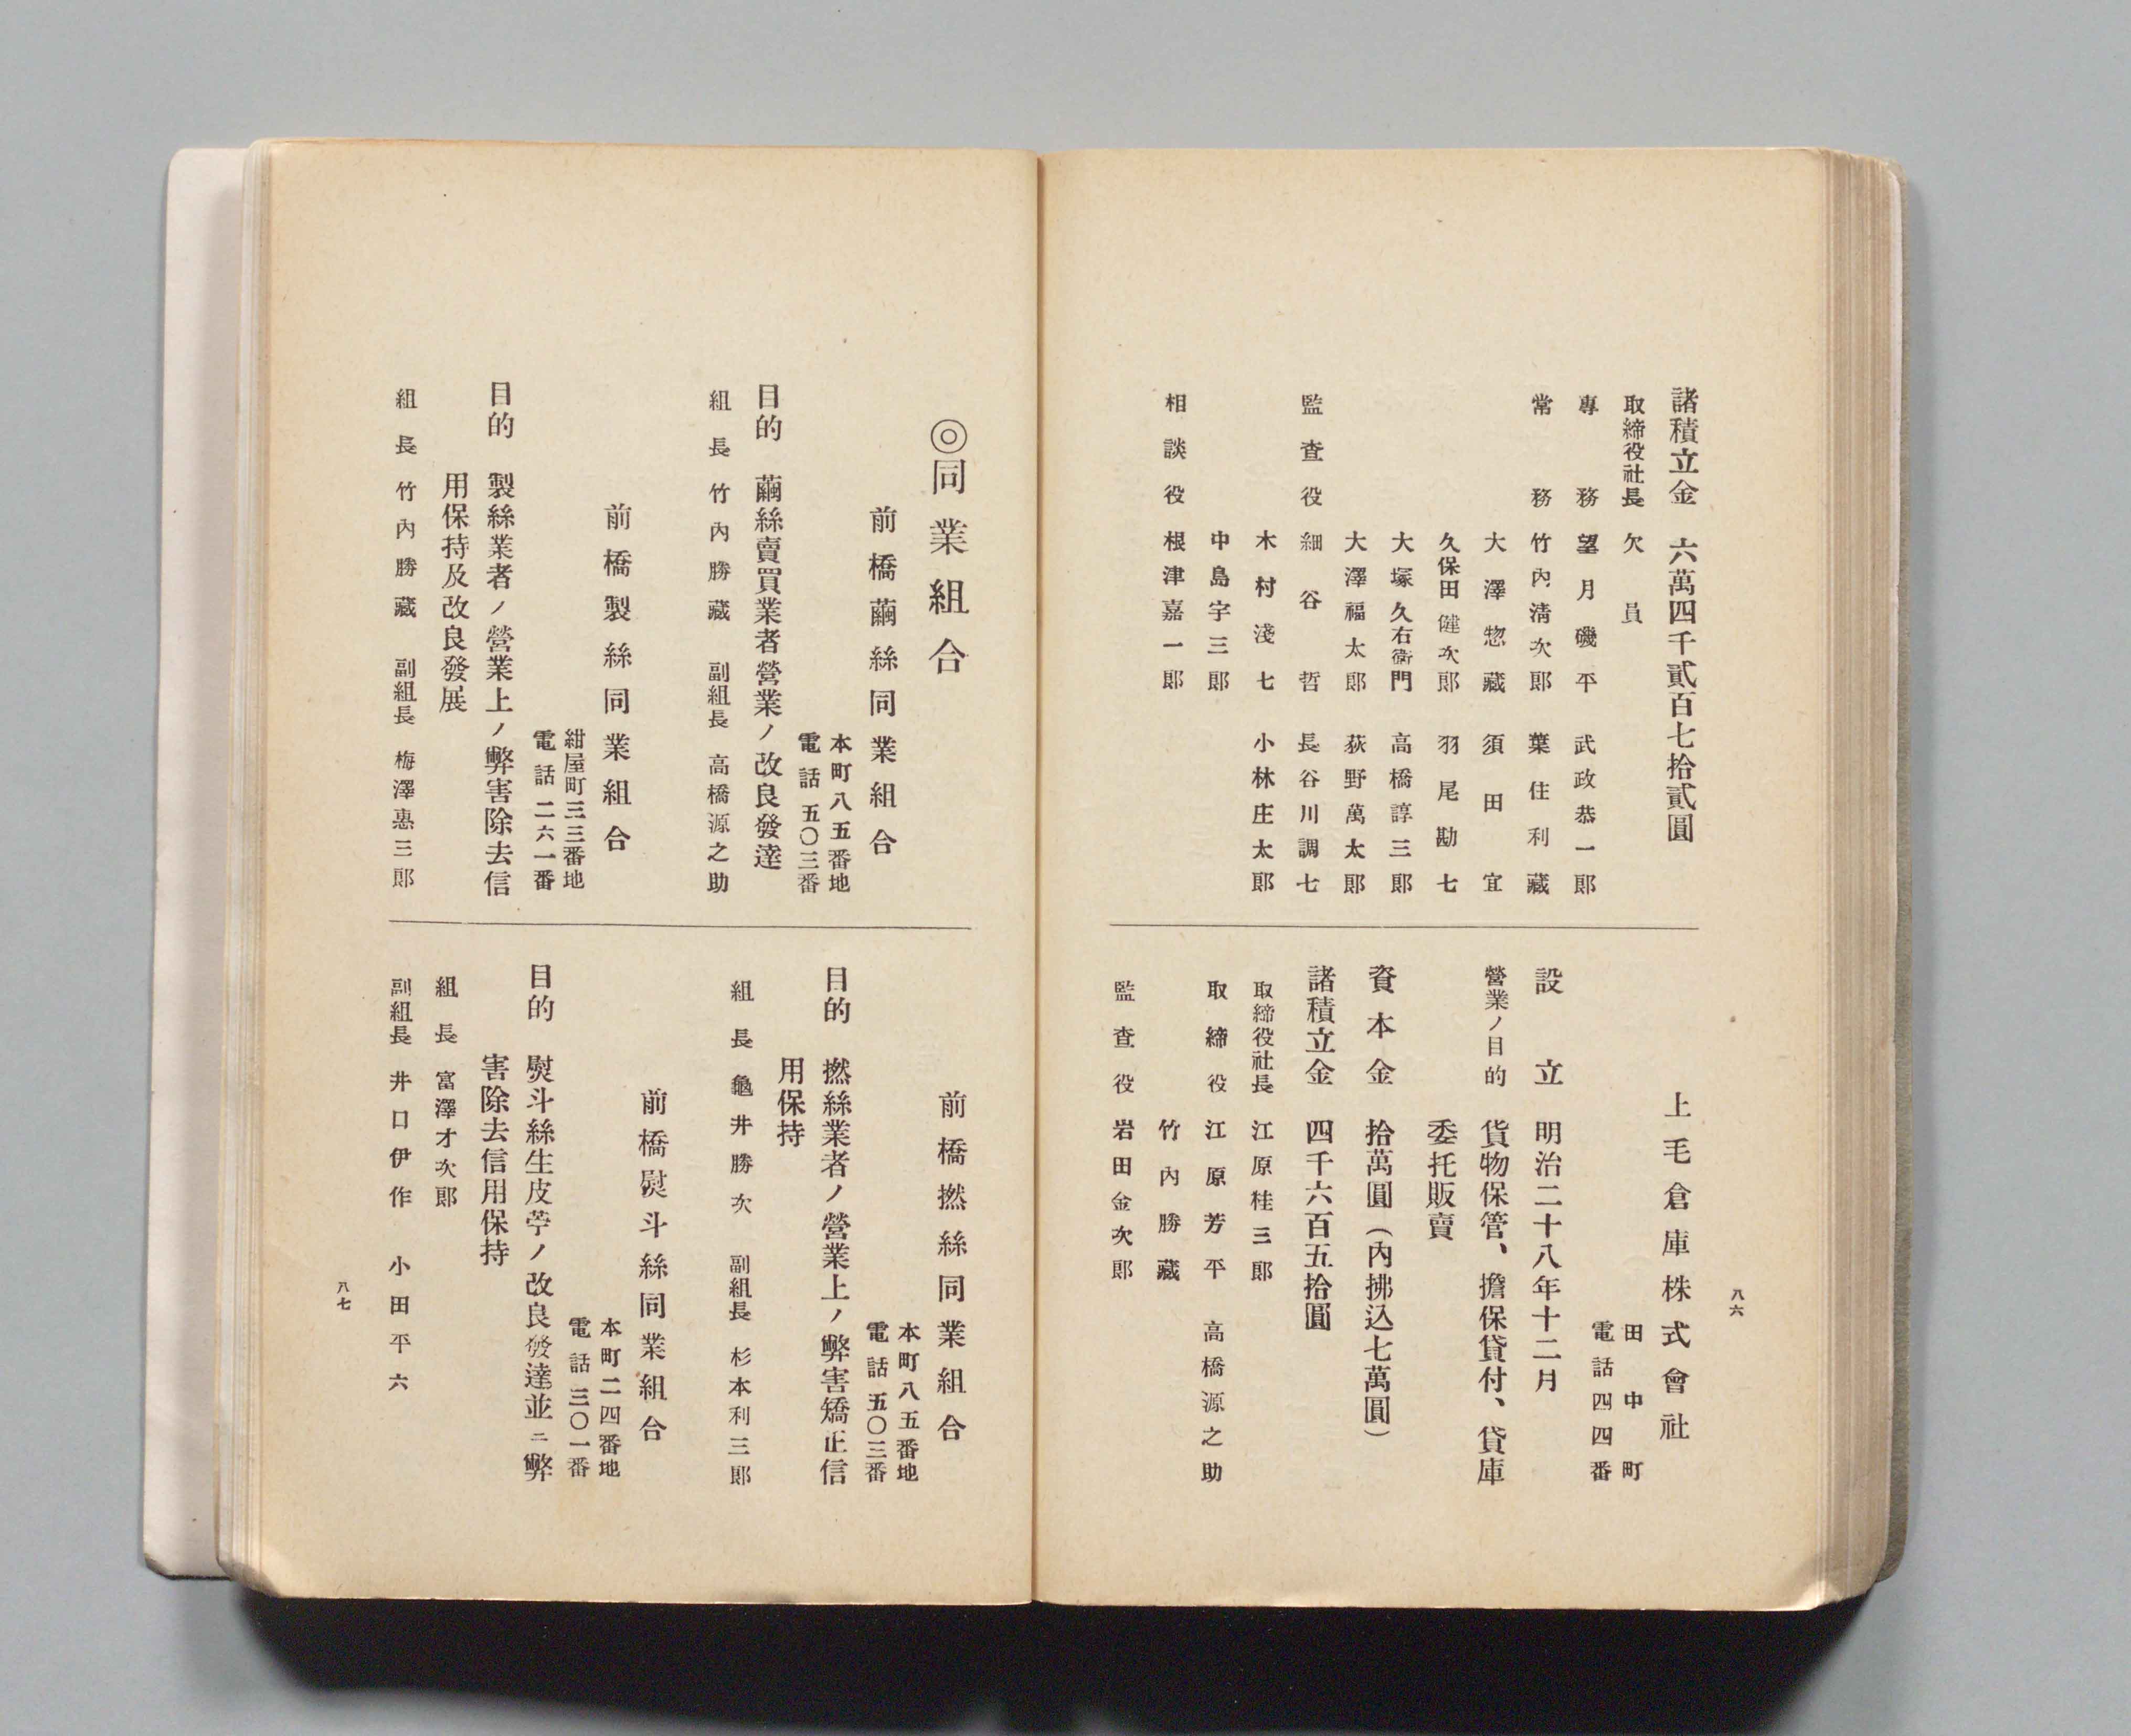 諸積立金　六萬四千貳百七拾貳圓
取締役社長　欠員
專務　望月磯平　武政恭一郎
常務　竹內淸次郎　葉住利藏
大澤惣藏　須田宜
久保田健次郎　羽尾勘七
大塚久右衞門　高橋諄三郎
大澤福太郎　荻野萬太郎
監査役　細谷哲　長谷川調七
木村淺七　小林庄太郎
中島宇三郎
相談役　根津嘉一郎
上毛倉庫株式會社
田中町
電話四四番
設立　明治二十八年十二月
營業ノ目的　貨物保管、擔保貸付、貸庫
委托販賣
資本金　拾萬圓（內拂込七萬圓）
諸積立金　四千六百五拾圓
取締役社長　江原桂三郎
取締役　江原芳平　高橋源之助
竹內勝藏
監査役　岩田金次郎
八六
◎同業組合
前橋繭絲同業組合
本町八五番地
電話五〇三番
目的　繭絲賣買業者營業ノ改良發達
組長　竹內勝藏　副組長　高橋源之助
前橋製絲同業組合
紺屋町三三番地
電話二六一番
目的　製絲業者ノ營業上ノ弊害除去信
用保持及改良發展
組長　竹內勝藏　副組長　梅澤惠三郎
前橋撚絲同業組合
本町八五番地
電話五〇三番
目的　撚絲業者ノ營業上ノ弊害矯正信
用保持
組長　龜井勝次　副組長　杉本利三郎
前橋熨斗絲同業組合
本町二四番地
電話三〇一番
目的　熨斗絲生皮苧ノ改良發達並ニ弊
害除去信用保持
組長　富澤才次郎
副組長　井口伊作　小田平六
八七